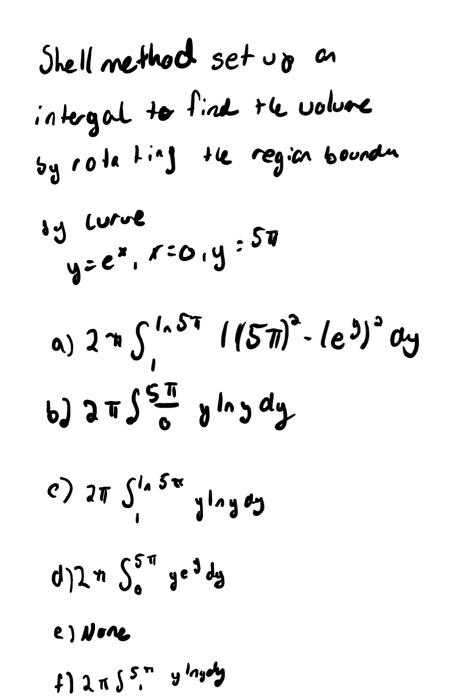 Shell method set up an
intergal to find the volume
by rotating the region boundu
by curve
y=eˣ, x=0, y=5π
a) 2π ∫₁^(ln 5π) ((5π)² - (eʸ)² dy
b) 2π ∫₀^(5π) y ln y dy
c) 2π ∫₁^(ln 5π) y ln y dy
d) 2π ∫₀^(5π) yeʸ dy
e) None
f) 2π ∫₁^(5π) y lny dy